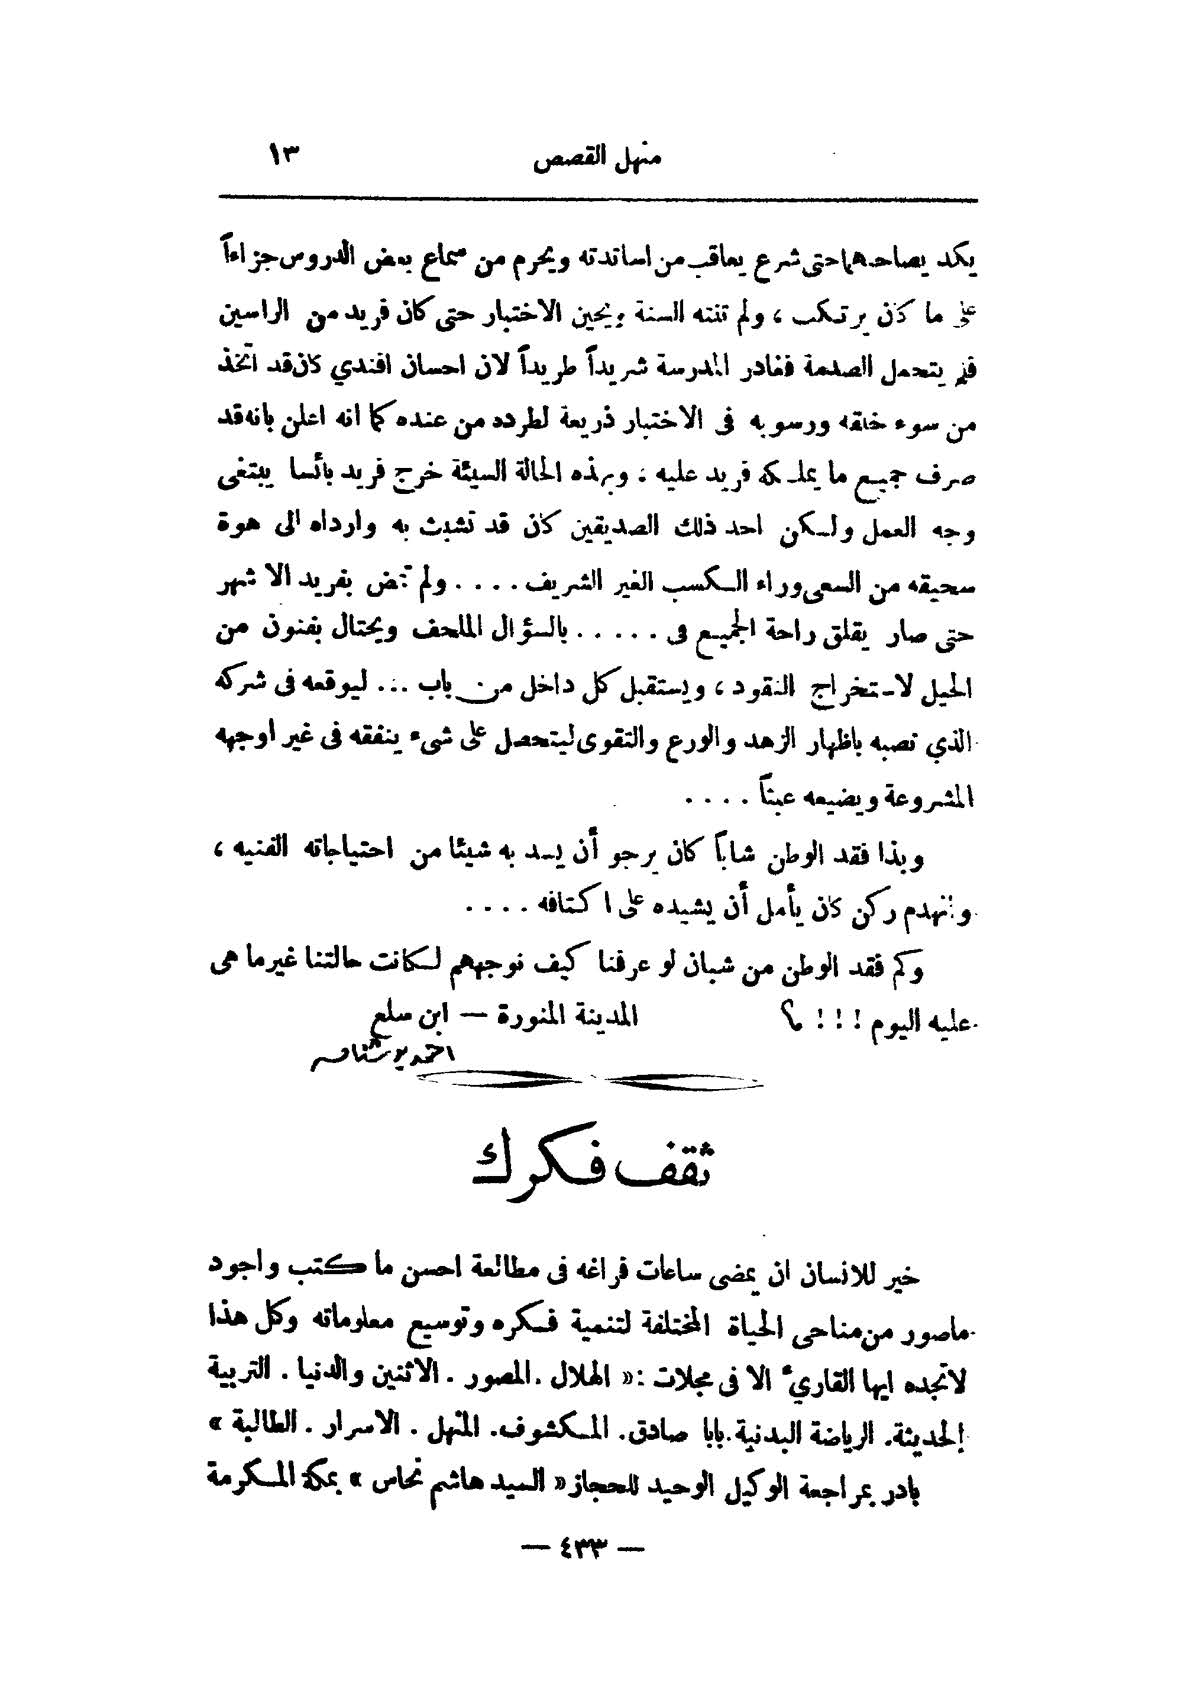 منهل القصص ١٣
يكد يصاحبهما حتى شرع يعاقب من اساتذته ويحرم من سماع بعض الدروس جزاءاً
على ما كان يرتكب ، ولم تنته السنة ويحين الاختبار حتى كان فريد من الراسبين
فلم يتحمل الصدمة فغادر المدرسة شريداً طريداً لان احسان افندي كان قد اتخذ
من سوء خلقه ورسوبه فى الاختبار ذريعة لطرده من عنده كما انه اعلن بانه قد
صرف جميع ما يملكه فريد عليه : وبهذه الحالة السيئة خرج فريد بائسا يبتغى
وجه العمل ولكن احد ذلك الصديقين كان قد تشبث به وارداه الى هوة
سحيقه من السعى وراء الكسب الغير الشريف . . . . ولم تمض بفريد الا شهر
حتى صار يقلق راحة الجميع فى . . . . . بالسؤال الملحف ويحتال بفنون من
الحيل لاستخراج النقود ، ويستقبل كل داخل من باب ... ليوقعه فى شركه
الذي نصبه باظهار الزهد والورع والتقوى ليتحصل على شىء ينفقه فى غير اوجهه
المشروعة ويضيعه عبثاً . . . .
وبذا فقد الوطن شاباً كان يرجو أن يسد به شيئا من احتياجاته الفنيه ،
وانهدم ركن كان يأمل أن يشيده على اكتافه . . . .
وكم فقد الوطن من شبان لو عرفنا كيف نوجههم لكانت حالتنا غير ما هى
عليه اليوم ! ! ! ؟ المدينة المنورة — ابن سلع
احمد بوشناق
ثقف فكرك
خير للانسان ان يمضى ساعات فراغه فى مطالعة احسن ما كتب واجود
ماصور من مناحى الحياة المختلفة لتنمية فكره وتوسيع معلوماته وكل هذا
لاتجده ايها القاريء الا فى مجلات : « الهلال . المصور . الاثنين والدنيا . التربية
الحديثة . الرياضة البدنية . بابا صادق . المكشوف . المنهل . الاسرار . الطالبة »
بادر بمراجعة الوكيل الوحيد للحجاز « السيد هاشم نحاس » بمكة المكرمة
— ٤٣٣ —